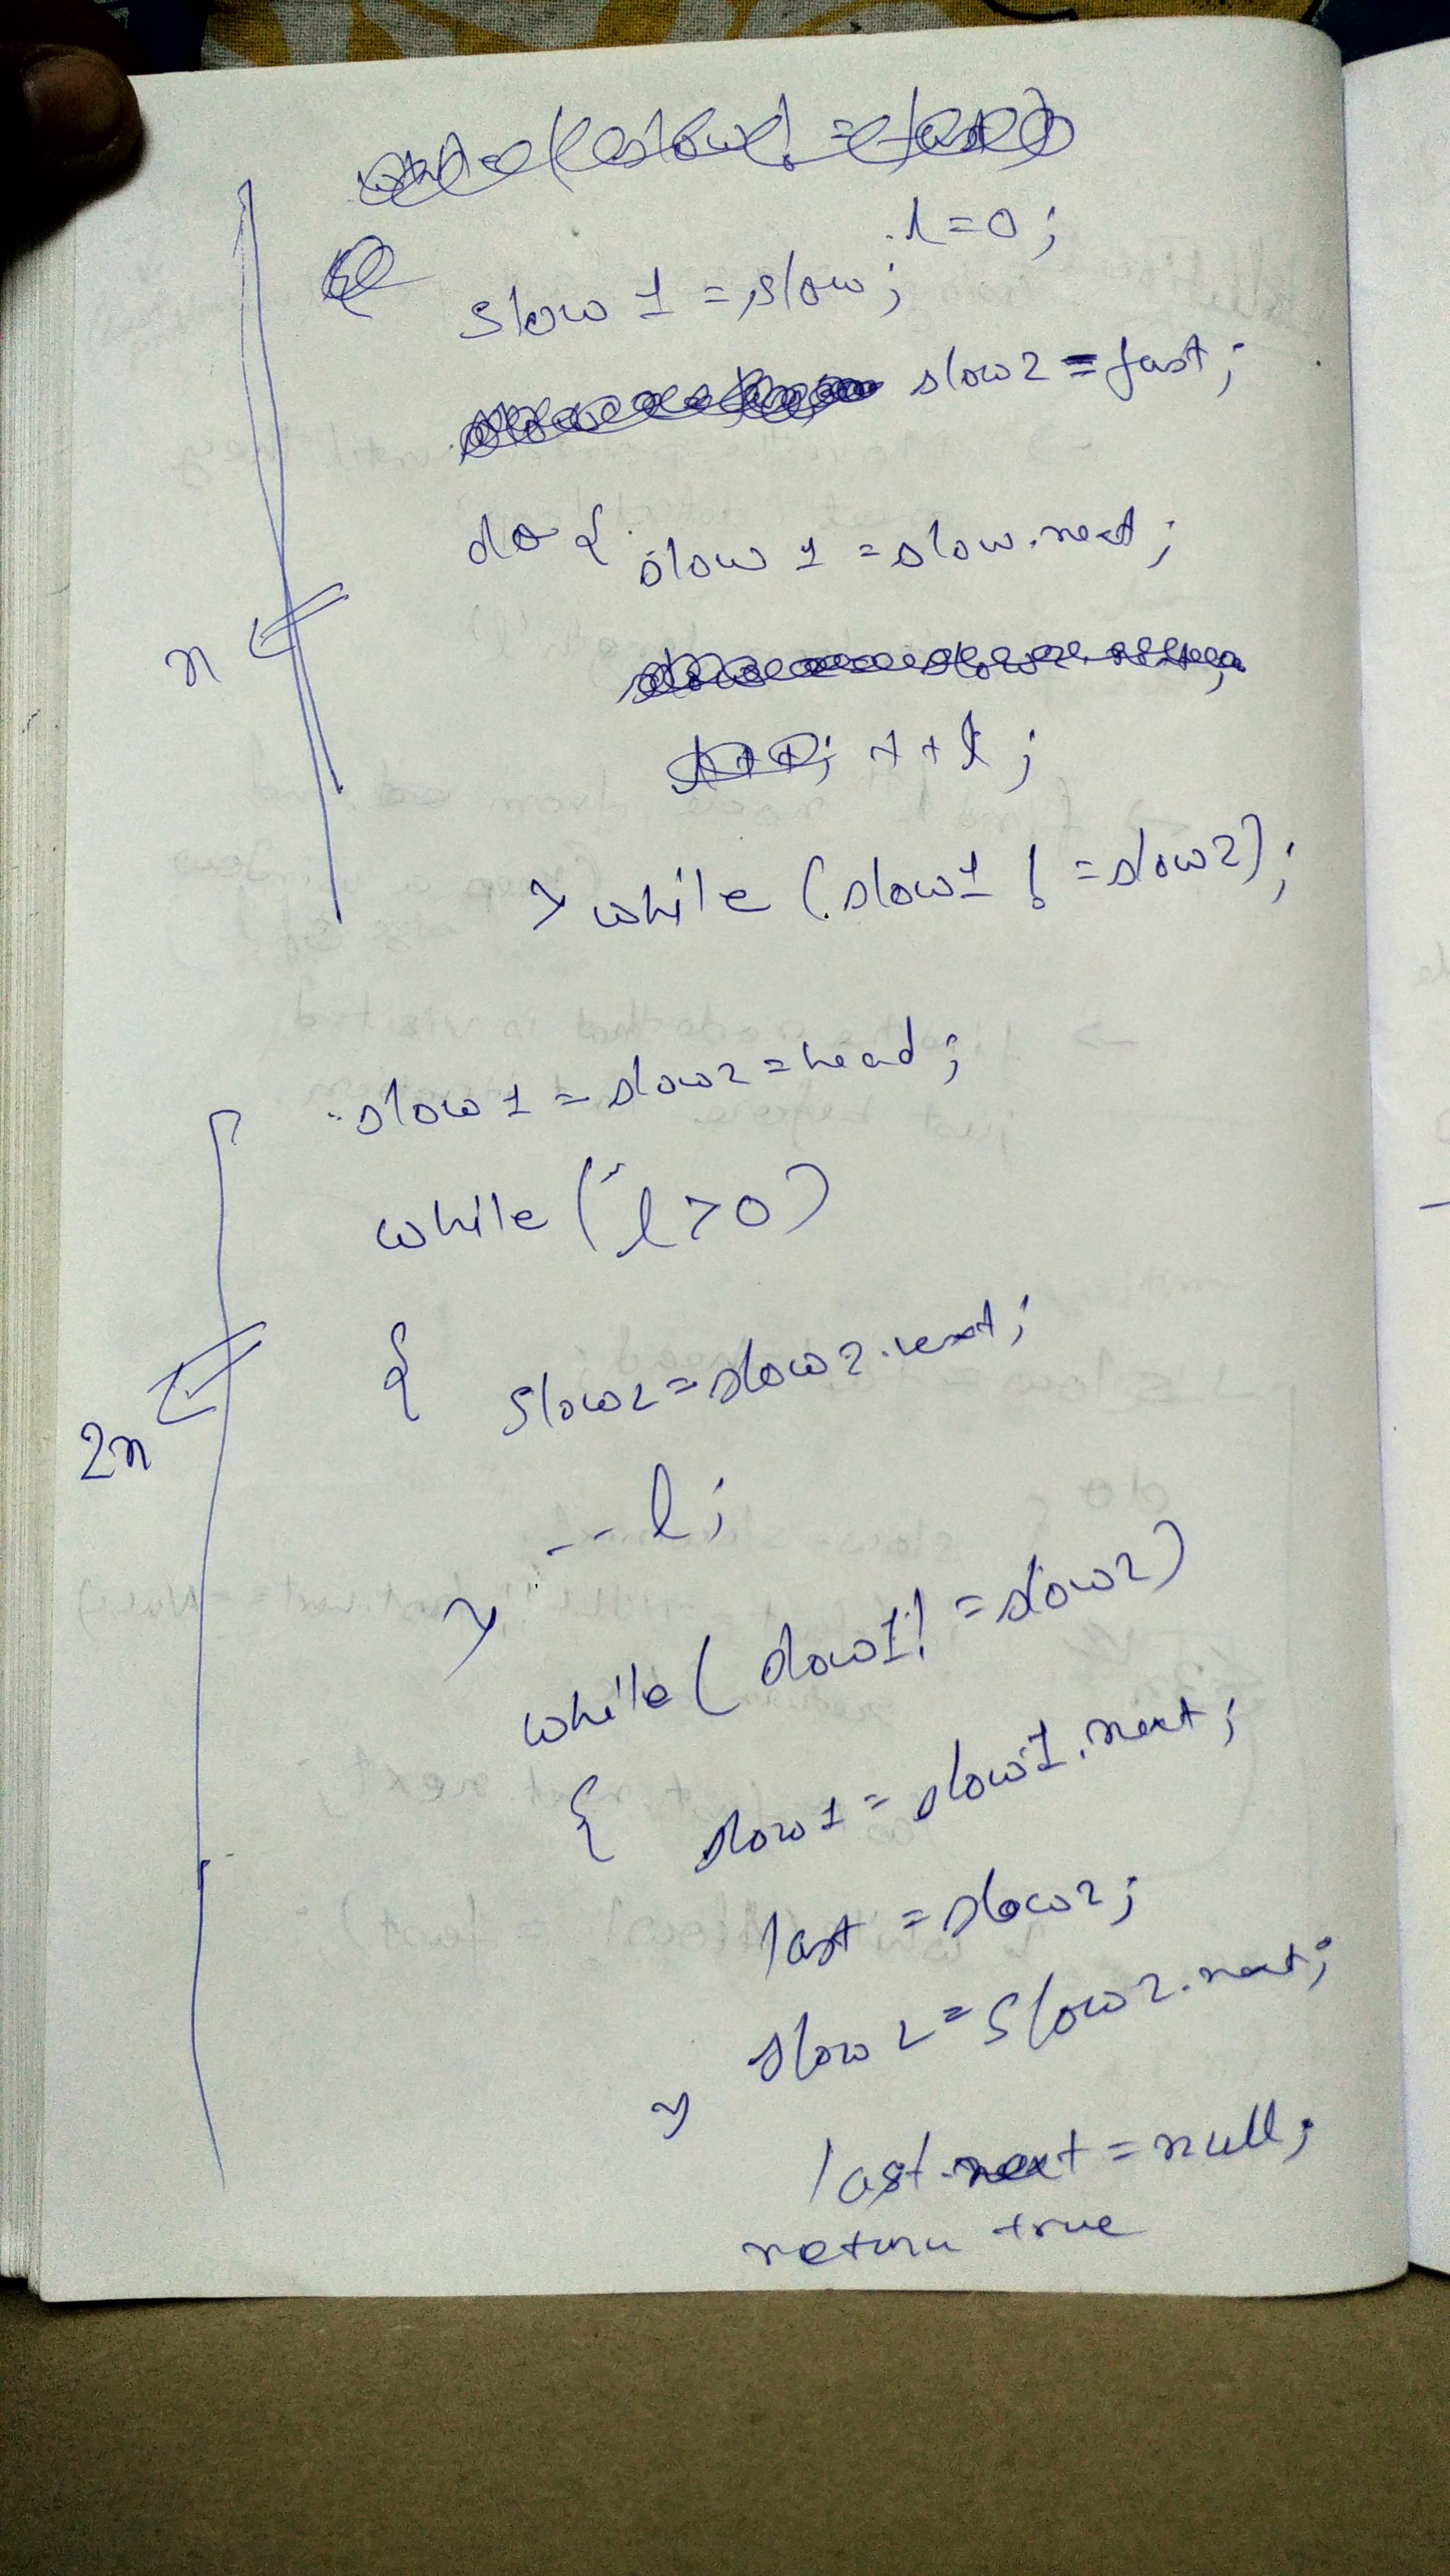 l=0;
slow 1 = slow;
slow2 = fast;
do { slow 1 = slow.next;
++l;
} while (slow1 != slow2);
n
slow 1 = slow2 = head;
while (l>0)
{ slow2 = slow2.next;
--l;
}
2n
while ( slow1! = slow2)
{ slow1 = slow1.next;
last = slow2;
slow2 = slow2.next;
}
last.next = null;
return true